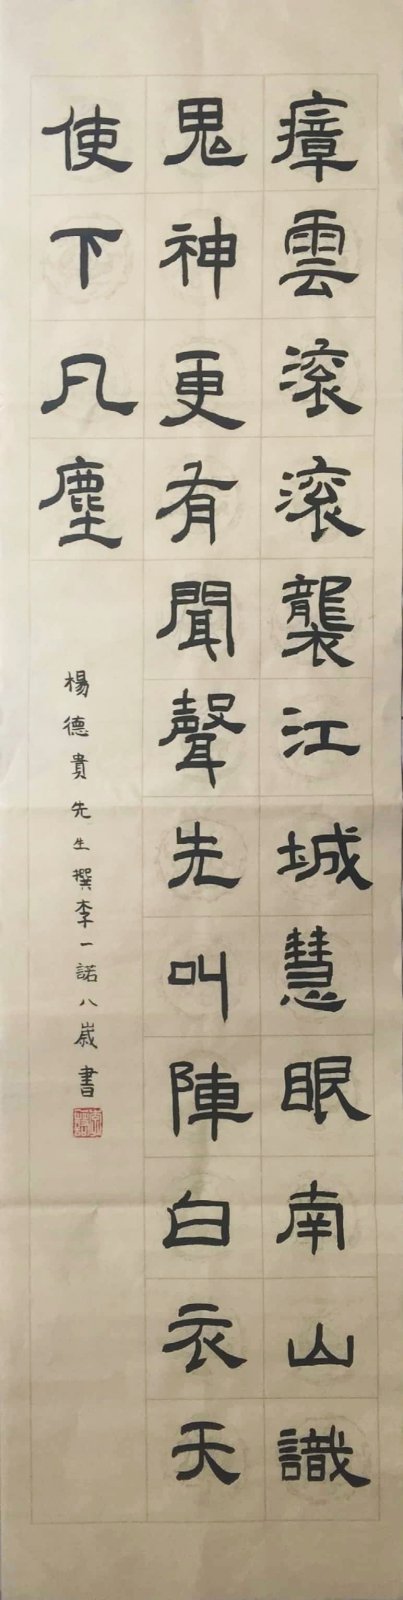 瘴雲滚滚襲江城慧眼南山識
鬼神更有聞聲先叫陣白衣天
使下凡塵
楊德貴先生撰李一諾八歲書